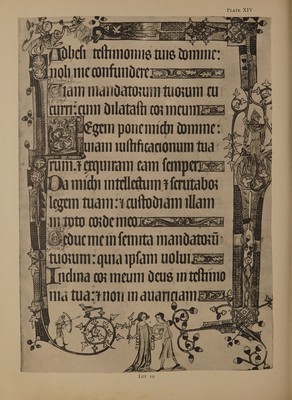 PLATE XIV
Adhesi testimoniis tuis domine:
noli me confundere
Uiam mandatorum tuorum cu
curri: cum dilatasti cor meum
Legem pone michi domine:
uiam iustificacionum tua
rum: ⁊ exquiram eam semper
Da michi intellectum ⁊ scrutabor
legem tuam: ⁊ custodiam illam
in toto corde meo
Deduc me in semita mandatorū
tuorum: quia ipsam uolui
Inclina cor meum deus in testimo
nia tua: ⁊ non in auariciam